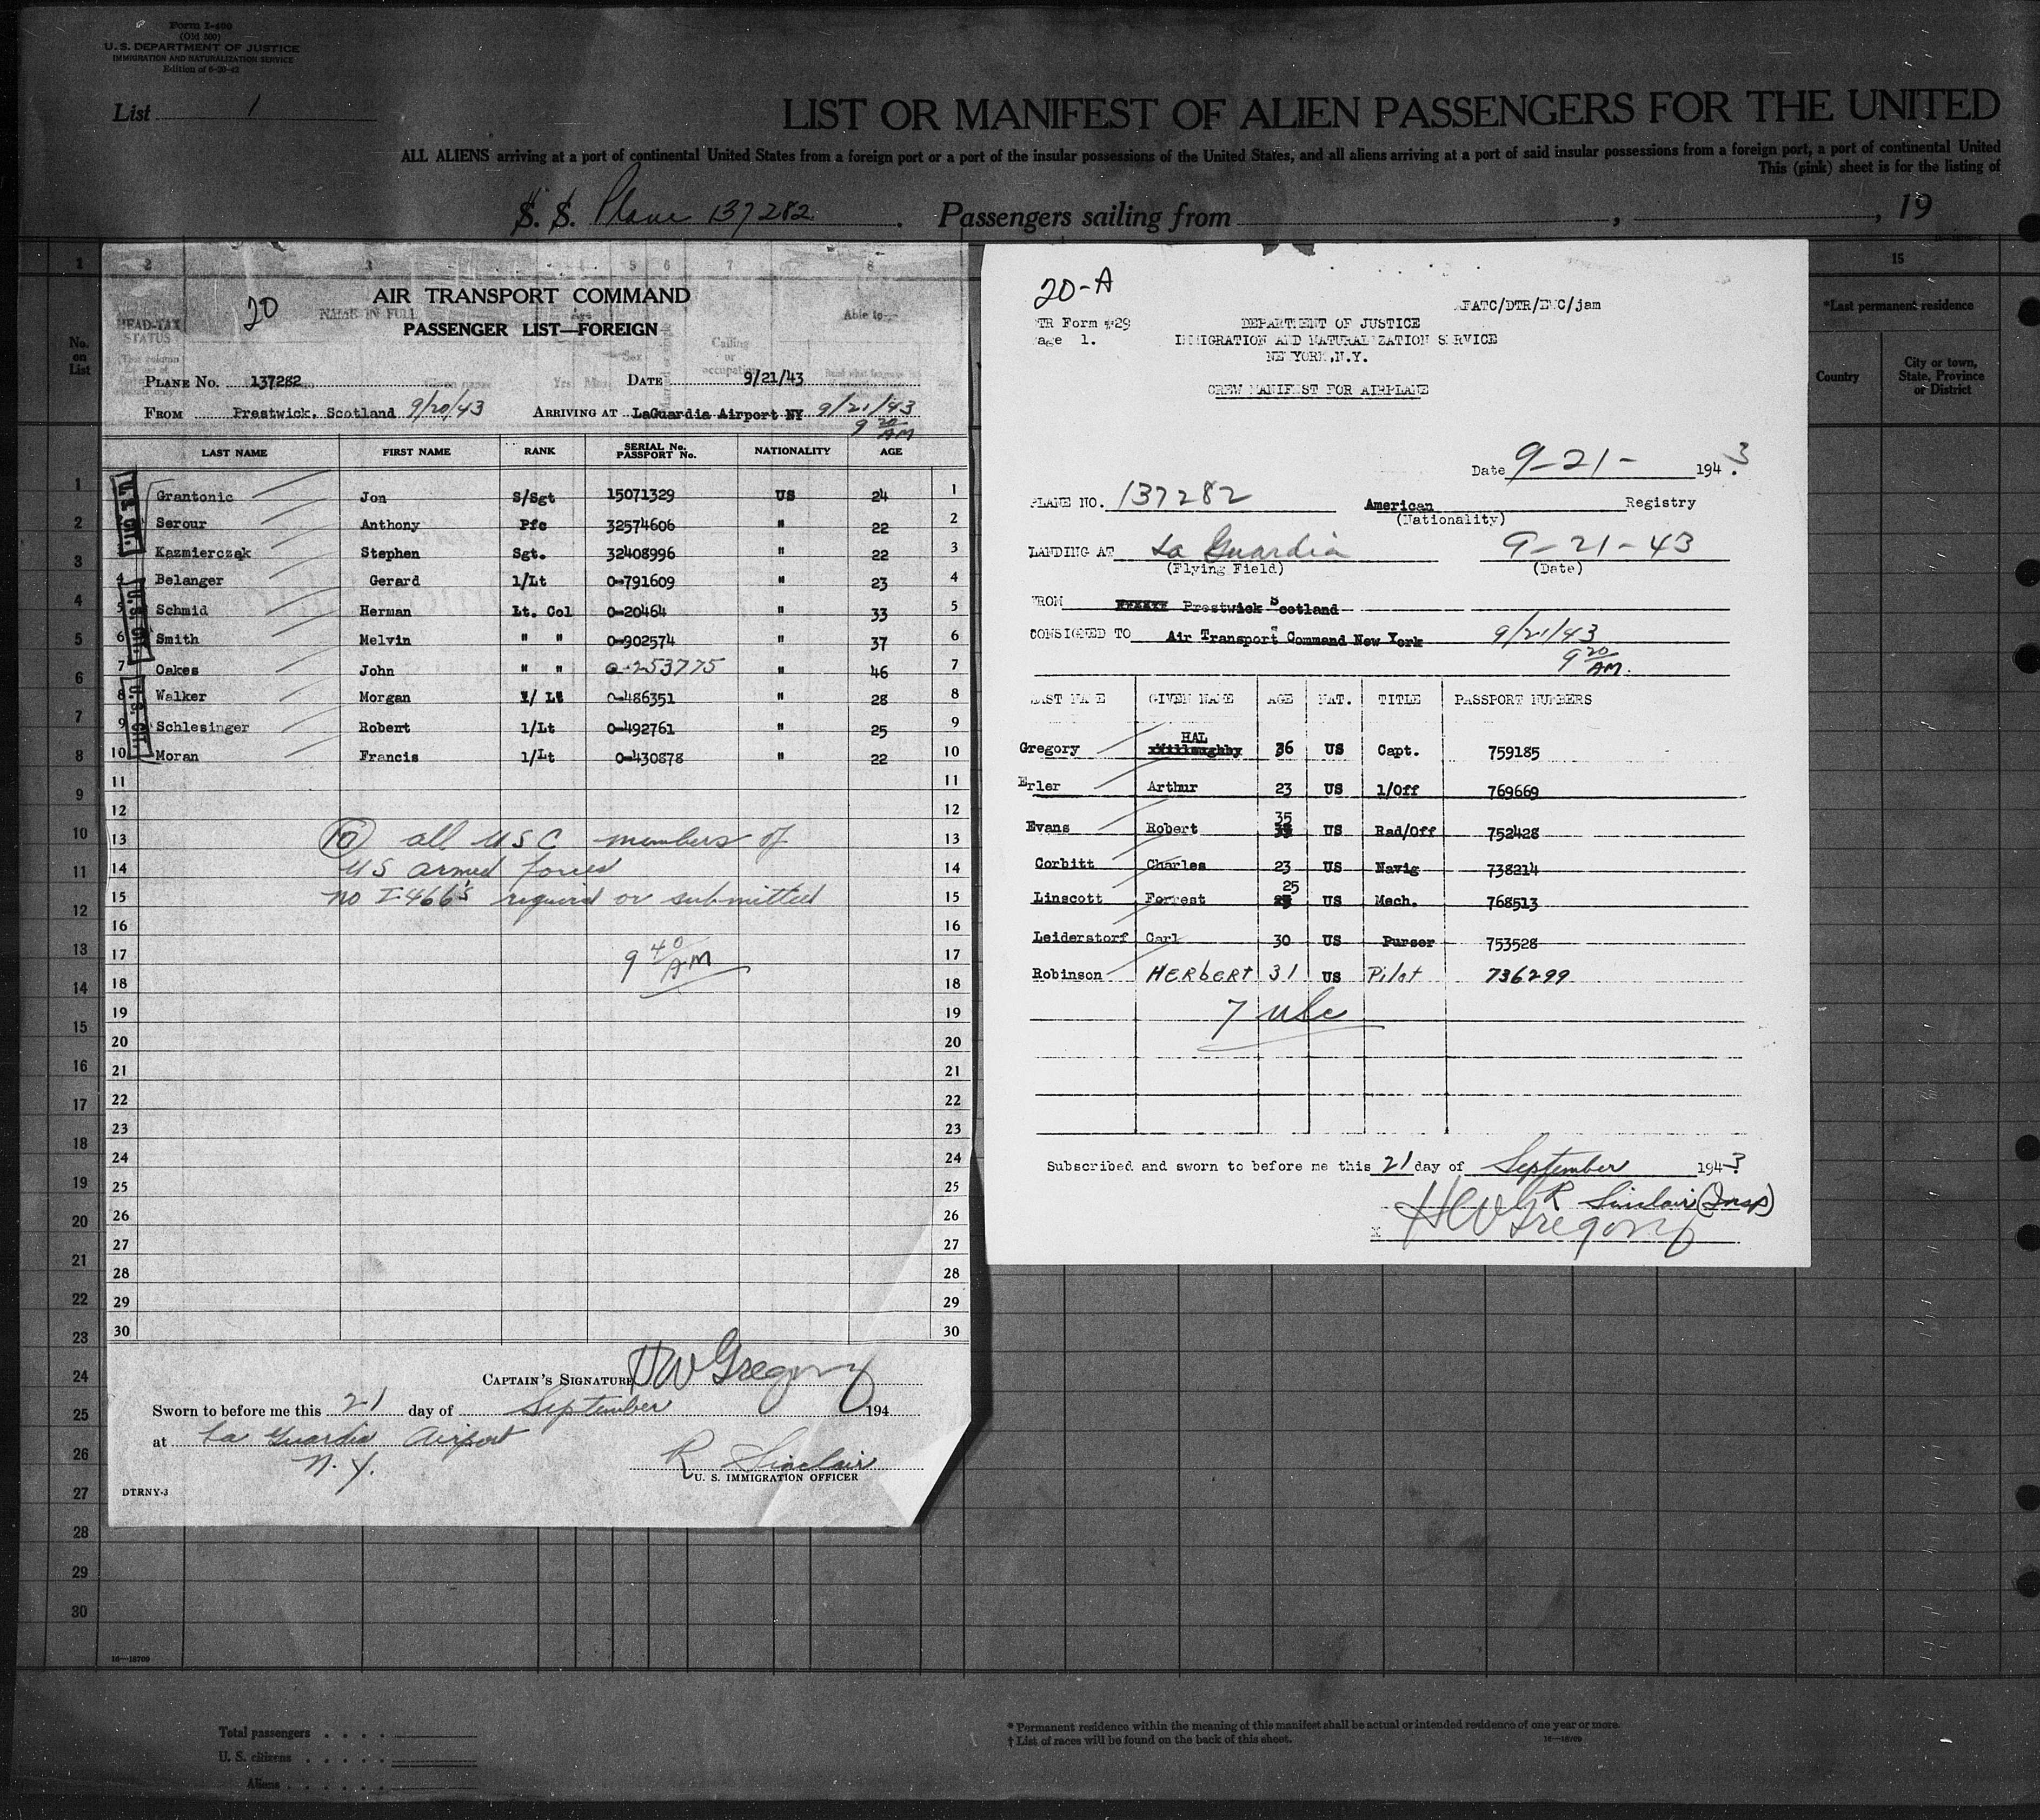 Form I-400
(Old 500)
U. S. DEPARTMENT OF JUSTICE
IMMIGRATION AND NATURALIZATION SERVICE
Edition of 6-20-42
List 1
LIST OR MANIFEST OF ALIEN PASSENGERS FOR THE UNITED
ALL ALIENS arriving at a port of continental United States from a foreign port or a port of the insular possessions of the United States, and all aliens arriving at a port of said insular possessions from a foreign port, a port of continental United
This (pink) sheet is for the listing of
S. S. Plane 137282. Passengers sailing from , , 19
1 2 3 4 5 6 7 8 15
HEAD-TAX STATUS
NAME IN FULL
Age
Sex
Calling or occupation
Able to—
No. on List
*Last permanent residence
Country
City or town, State, Province or District
20
AIR TRANSPORT COMMAND
PASSENGER LIST—FOREIGN
PLANE NO. 137282 DATE 9/21/43
FROM Prestwick, Scotland 9/20/43 ARRIVING AT LaGuardia Airport NY 9/21/43
9 20 AM
LAST NAME FIRST NAME RANK SERIAL No. PASSPORT No. NATIONALITY AGE
U.S. CIT.
U.S. CIT.
U.S. CIT.
1 Grantonic Jon S/Sgt 15071329 US 24 1
2 Serour Anthony Pfc 32574606 " 22 2
3 Kazmierczak Stephen Sgt. 32408996 " 22 3
4 Belanger Gerard 1/Lt 0-791609 " 23 4
5 Schmid Herman Lt. Col 0-20464 " 33 5
6 Smith Melvin " " 0-902574 " 37 6
7 Oakes John " " 0-253775 " 46 7
8 Walker Morgan 1/ Lt 0-486351 " 28 8
9 Schlesinger Robert 1/Lt 0-492761 " 25 9
10 Moran Francis 1/Lt 0-430878 " 22 10
11 11
12 12
13 (10) all USC members of 13
14 US armed forces 14
15 no I-466's required or submitted 15
16 16
17 9 40 AM 17
18 18
19 19
20 20
21 21
22 22
23 23
24 24
25 25
26 26
27 27
28 28
29 29
30 30
CAPTAIN'S SIGNATURE HW Gregory
Sworn to before me this 21 day of September 194
at La Guardia Airport
N. Y.
R Sinclair
U. S. IMMIGRATION OFFICER
DTRNY-3
20-A
FATC/DTR/EMC/jam
TR Form #29
age 1.
DEPARTMENT OF JUSTICE
IMMIGRATION AND NATURALIZATION SERVICE
NEW YORK,N.Y.
CREW MANIFEST FOR AIRPLANE
Date 9-21- 1943
PLANE NO. 137282 American Registry
(Nationality)
LANDING AT La Guardia 9-21-43
(Flying Field) (Date)
FROM Prestwick Scotland
CONSIGNED TO Air Transport Command New York 9/21/43
9 20 AM.
LAST NAME GIVEN NAME AGE NAT. TITLE PASSPORT NUMBERS
Gregory Willoughby HAL 36 US Capt. 759185
Erler Arthur 23 US 1/Off 769669
Evans Robert 35 US Rad/Off 752428
Corbitt Charles 23 US Navig 738214
Linscott Forrest 25 US Mech. 768513
Leiderstorf Carl 30 US Purser 753528
Robinson HERBERT 31 US Pilot 736299
7 USC
Subscribed and sworn to before me this 21 day of September 1943
R Sinclair (Insp)
x HW Gregory
1
2
3
4
5
6
7
8
9
10
11
12
13
14
15
16
17
18
19
20
21
22
23
24
25
26
27
28
29
30
16—18709
Total passengers . . . .
U. S. citizens . . . . .
Aliens . . . . . .
* Permanent residence within the meaning of this manifest shall be actual or intended residence of one year or more.
† List of races will be found on the back of this sheet.
16—18709